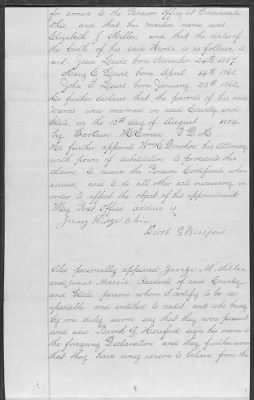 for arrears to the Pension Office at Cincinnati
Ohio, and that her maiden name was
Elizabeth J. Miller and that the date of
the birth of his said Wards, is as follows, to
wit: Jane Davis born November 24th 1857
Mary C. Davis born April 14th 1860
John T. Davis born January 25th 1862
He further declares that the parents of his said
Wards were married in said County and
State, on the 13th day of August 1854
by Certain
He further appoints Wm H. Donohoe his Attorney
with power of substitution to prosecute this
claim; to receive the Pension Certificate when
issued, and to do all other acts necessary in
order to effect the object of his appointment
His Post Office address is
Piney Ohio
Brook G. Hereford
Also personally appeared George M. Miller
and Isaac Morris Residents of said County
and State persons whom I certify to be re-
spectable and entitled to credit, and who being
by me duly sworn say that they were present
and saw Brook G. Hereford sign his name to
the foregoing Declaration, and they further swear
that they have every reason to believe from the